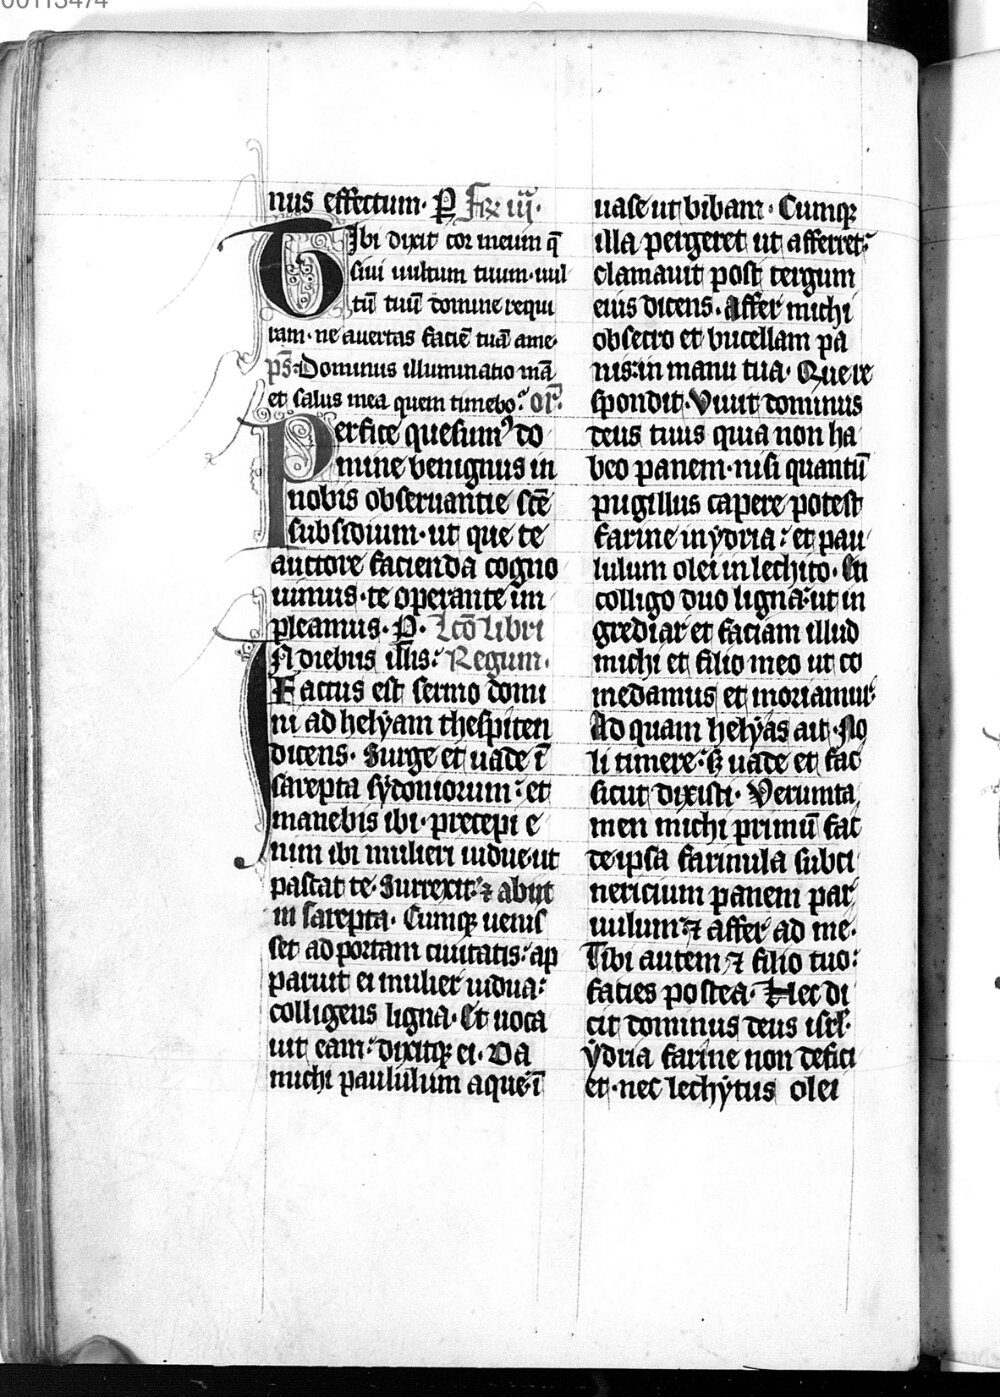 00113474
nus effectum· P̲ Fr̲ iij·
Tibi dixit cor meum q̄
siui uultum tuum· uul
tū tuū domine requi
ram· ne auertas faciē tuā ame·
ps̄· Dominus illuminatio mā
et salus mea quem timebo· or̄·
Perfice quesumꝰ do
mine benignus in
nobis obseruantie scē
subsidium· ut que te
auctore facienda cogno
uimus· te operante im
pleamus· P̲· Lcō libri
In diebus illis: Regum·
Factus est sermo domi
ni ad helyam thespiten
dicens· Surge et uade ī
sarepta sydoniorum: et
manebis ibi· precepi e
nim ibi mulieri uidue· ut
pascat te· Surrexit: ⁊ abiit
in sarepta· Cumqꝫ uenis
set ad portam ciuitatis: ap
paruit ei mulier uidua:
colligens ligna· Et uoca
uit eam: dixitqꝫ ei· Da
michi paululum aque· ī
uase ut bibam· Cumqꝫ
illa pergeret ut afferret:
clamauit post tergum
eius dicens· Affer michi
obsecro et bucellam pa
nis: in manu tua· Que re
spondit· Viuit dominus
deus tuus quia non ha
beo panem· nisi quantū
pugillus capere potest
farine in ydria: et pau
lulum olei in lechito· En
colligo duo ligna: ut in
grediar et faciam illud
michi et filio meo ut co
medamus et moriamur:
Ad quam helyas ait· No
li timere: sꝫ uade et fac
sicut dixisti· Verumta
men michi primū fac
de ipsa farinula subci
nericium panem par
uulum: ⁊ affer ad me·
Tibi autem ⁊ filio tuo:
facies postea· Hec di
cit dominus deus isrl̄·
ydria farine non defici
et· nec lechytus olei